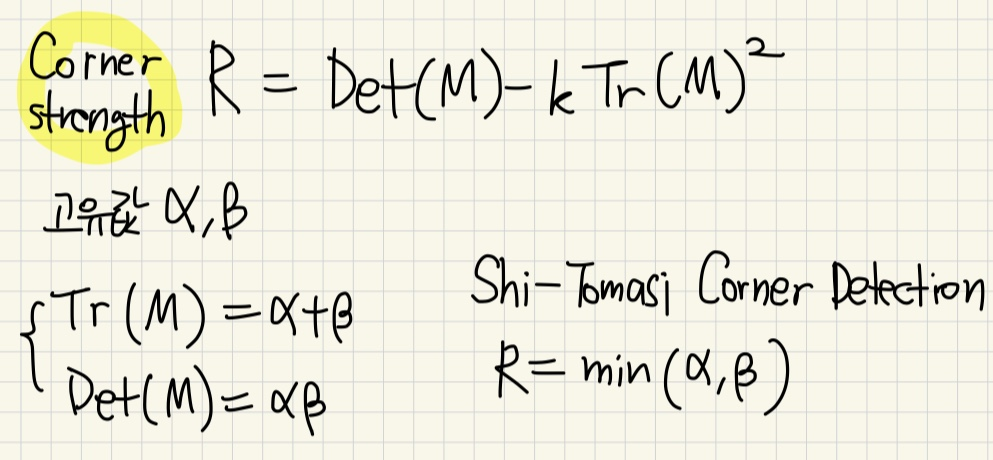 Corner
strength
R = Det(M) - k Tr(M)²
고유값 α, β
{ Tr(M) = α+β
Det(M) = αβ
Shi-Tomasi Corner Detection
R = min(α, β)